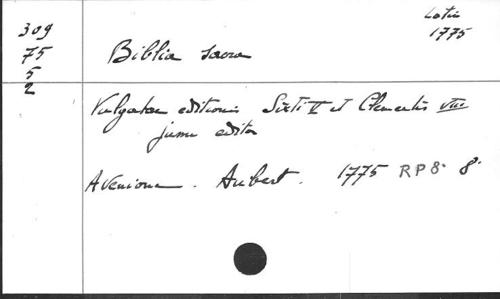 Latin
1775
309
75
5
2
Biblia sacra
Vulgatae editionis Sixti V et Clementis VIII
jussu edita
Avenione. Aubert. 1775 RP8° 8°